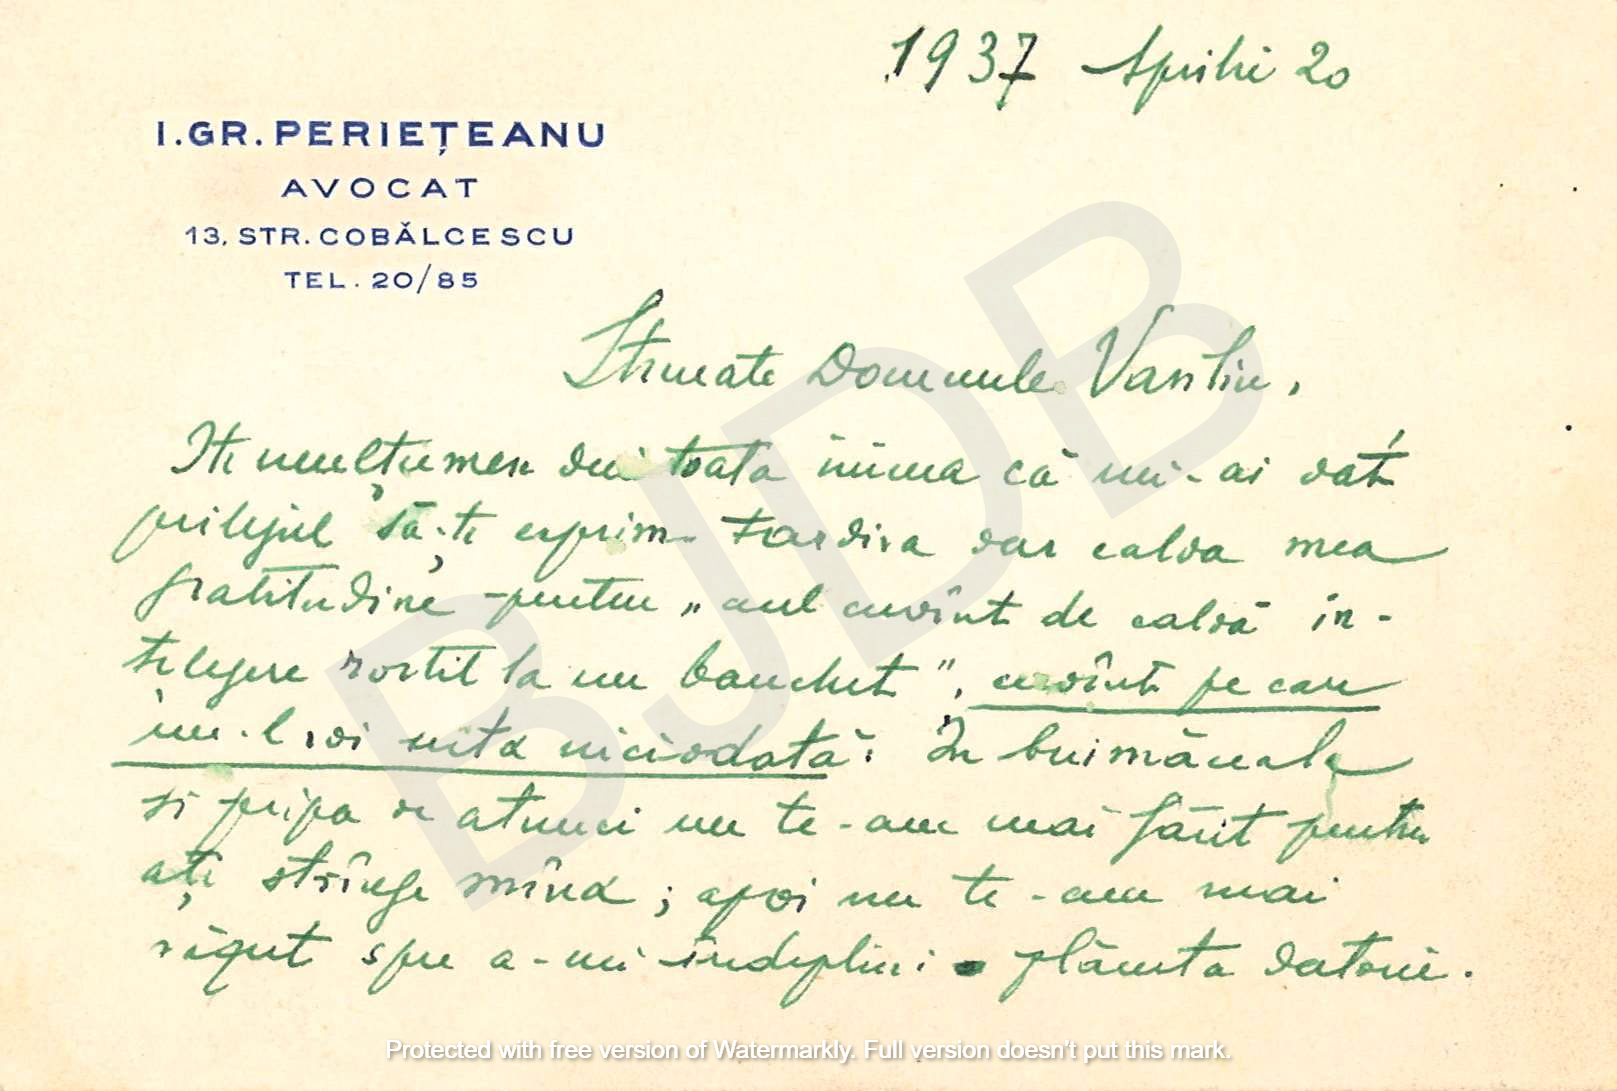 1937 Aprilie 20
I. GR. PERIEȚEANU
AVOCAT
13, STR. COBĂLCESCU
TEL. 20/85
Stimate Domnule Vasiliu,
Iți mulțumesc din toată inima că mi-ai dat
prilejul să-ți exprim tardiva dar calda mea
gratitudine pentru „acel cuvînt de caldă in-
țelegere rostit la un banchet", cuvînt pe care
nu-l voi uita niciodată. În buimăceala
și pripa de atunci nu te-am mai găsit pentru
ați strînge mîna; apoi nu te-am mai
văzut spre a-mi îndeplini plăcuta datorie.
BJDB
Protected with free version of Watermarkly. Full version doesn't put this mark.